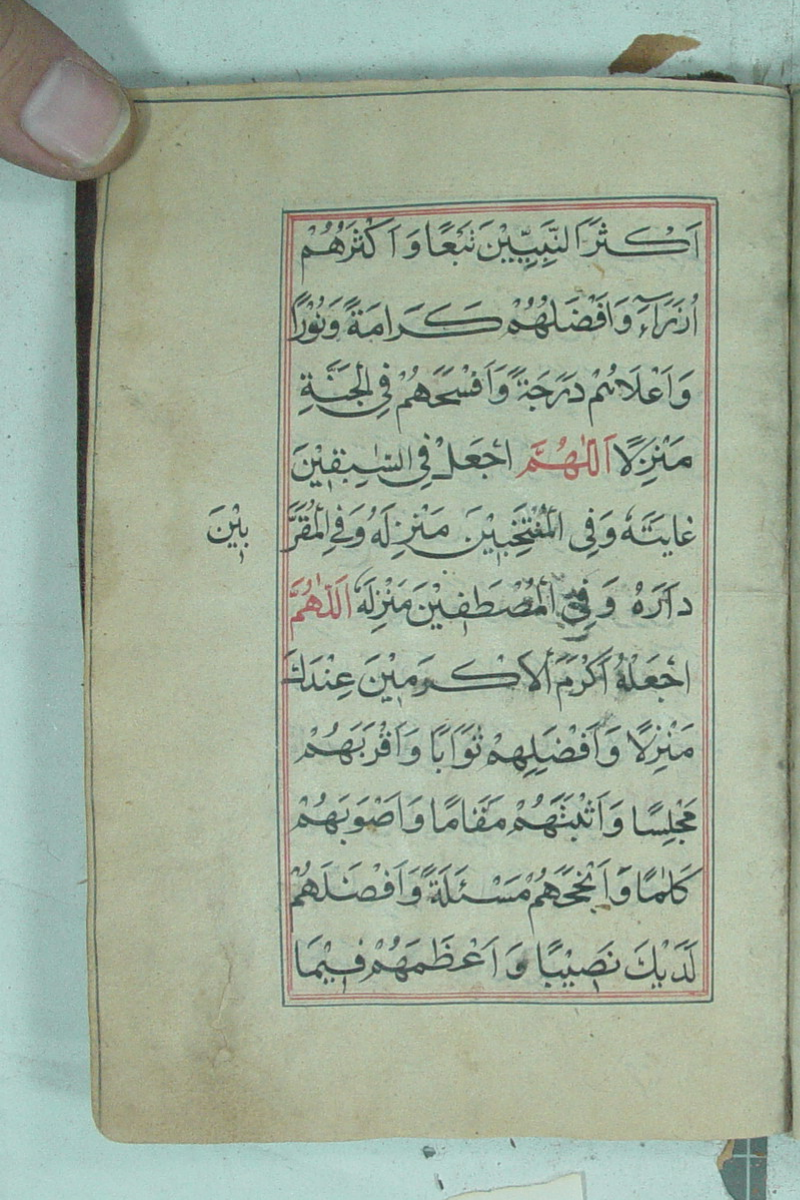 اَكْثَرَ النَّبِيِّيْنَ تَبَعًا وَ اَكْثَرَهُمْ
اُزَرَآءَ وَاَفْضَلَهُمْ كَرَامَةً وَنُوْرًا
وَاَعْلَاهُمْ دَرَجَةً وَاَفْسَحَهُمْ فِي الْجَنَّةِ
مَنْزِلًا اَللّٰهُمَّ اجْعَلْ فِي السّٰبِقِيْنَ
غايَتَهُ وَفِي الْمُنْتَخَبِيْنَ مَنْزِلَهُ وَفِي الْمُقَرَّ
بِيْنَ
دارَهُ وَفِي الْمُصْطَفِيْنَ مَنْزِلَهُ اَللّٰهُمَّ
اجْعَلْهُ اَكْرَمَ الْاَكْرَمِيْنَ عِنْدَكَ
مَنْزِلًا وَاَفْضَلِهِمْ ثَوَابًا وَاَقْرَبَهُمْ
مَجْلِسًا وَاَثْبَتَهُمْ مَقَامًا وَاَصْوَبَهُمْ
كَلَامًا وَاَنْجَحَهُمْ مَسْئَلَةً وَاَفْضَلَهُمْ
لَدَيْكَ نَصِيْبًا وَ اَعْظَمَهُمْ فِيْمَا